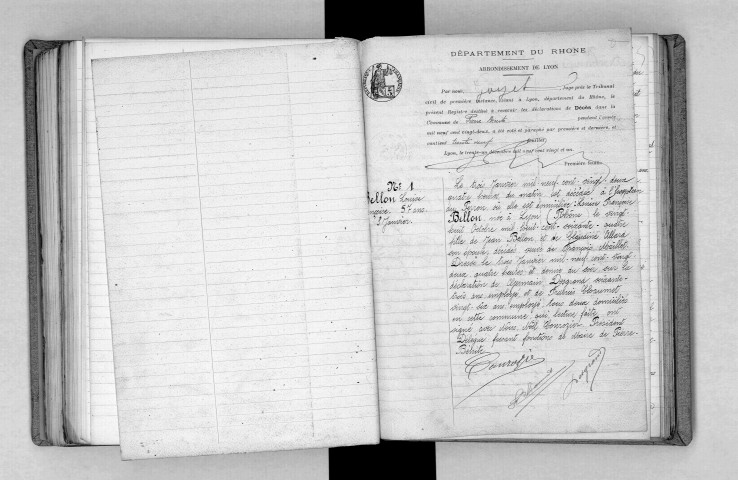 DÉPARTEMENT DU RHONE
ARRONDISSEMENT DE LYON
Par nous, Juge près le Tribunal
civil de première instance, séant à Lyon, département du Rhône, le
présent Registre destiné à recevoir les déclarations de Décès dans la
Commune de Pierre Bénite pendant l'année
mil neuf cent vingt-deux, a été coté et paraphé par première et dernière, et
contient trente neuf feuillets
Lyon, le trente-un décembre mil neuf cent vingt et un.
Première feuille.
N° 1
Bellon Louise
57 ans
3 Janvier
Le trois Janvier mil neuf cent vingt deux
quatre heures du matin est décédée à
du Perron où elle est domiciliée Louise Françoise
Bellon née à Lyon (Rhône) le vingt
huit Octobre mil huit cent soixante quatre
fille de Jean Bellon et de Claudine
son épouse, décédés veuve de François
Dressé le trois Janvier mil neuf cent vingt
deux quatre heures et demie du soir sur la
déclaration de Germain soixante
trois ans employé et de
vingt six ans employé tous deux domiciliés
en cette commune qui lecture faite ont
signé avec Nous Président
Délégué faisant fonctions de Maire de Pierre
Bénite